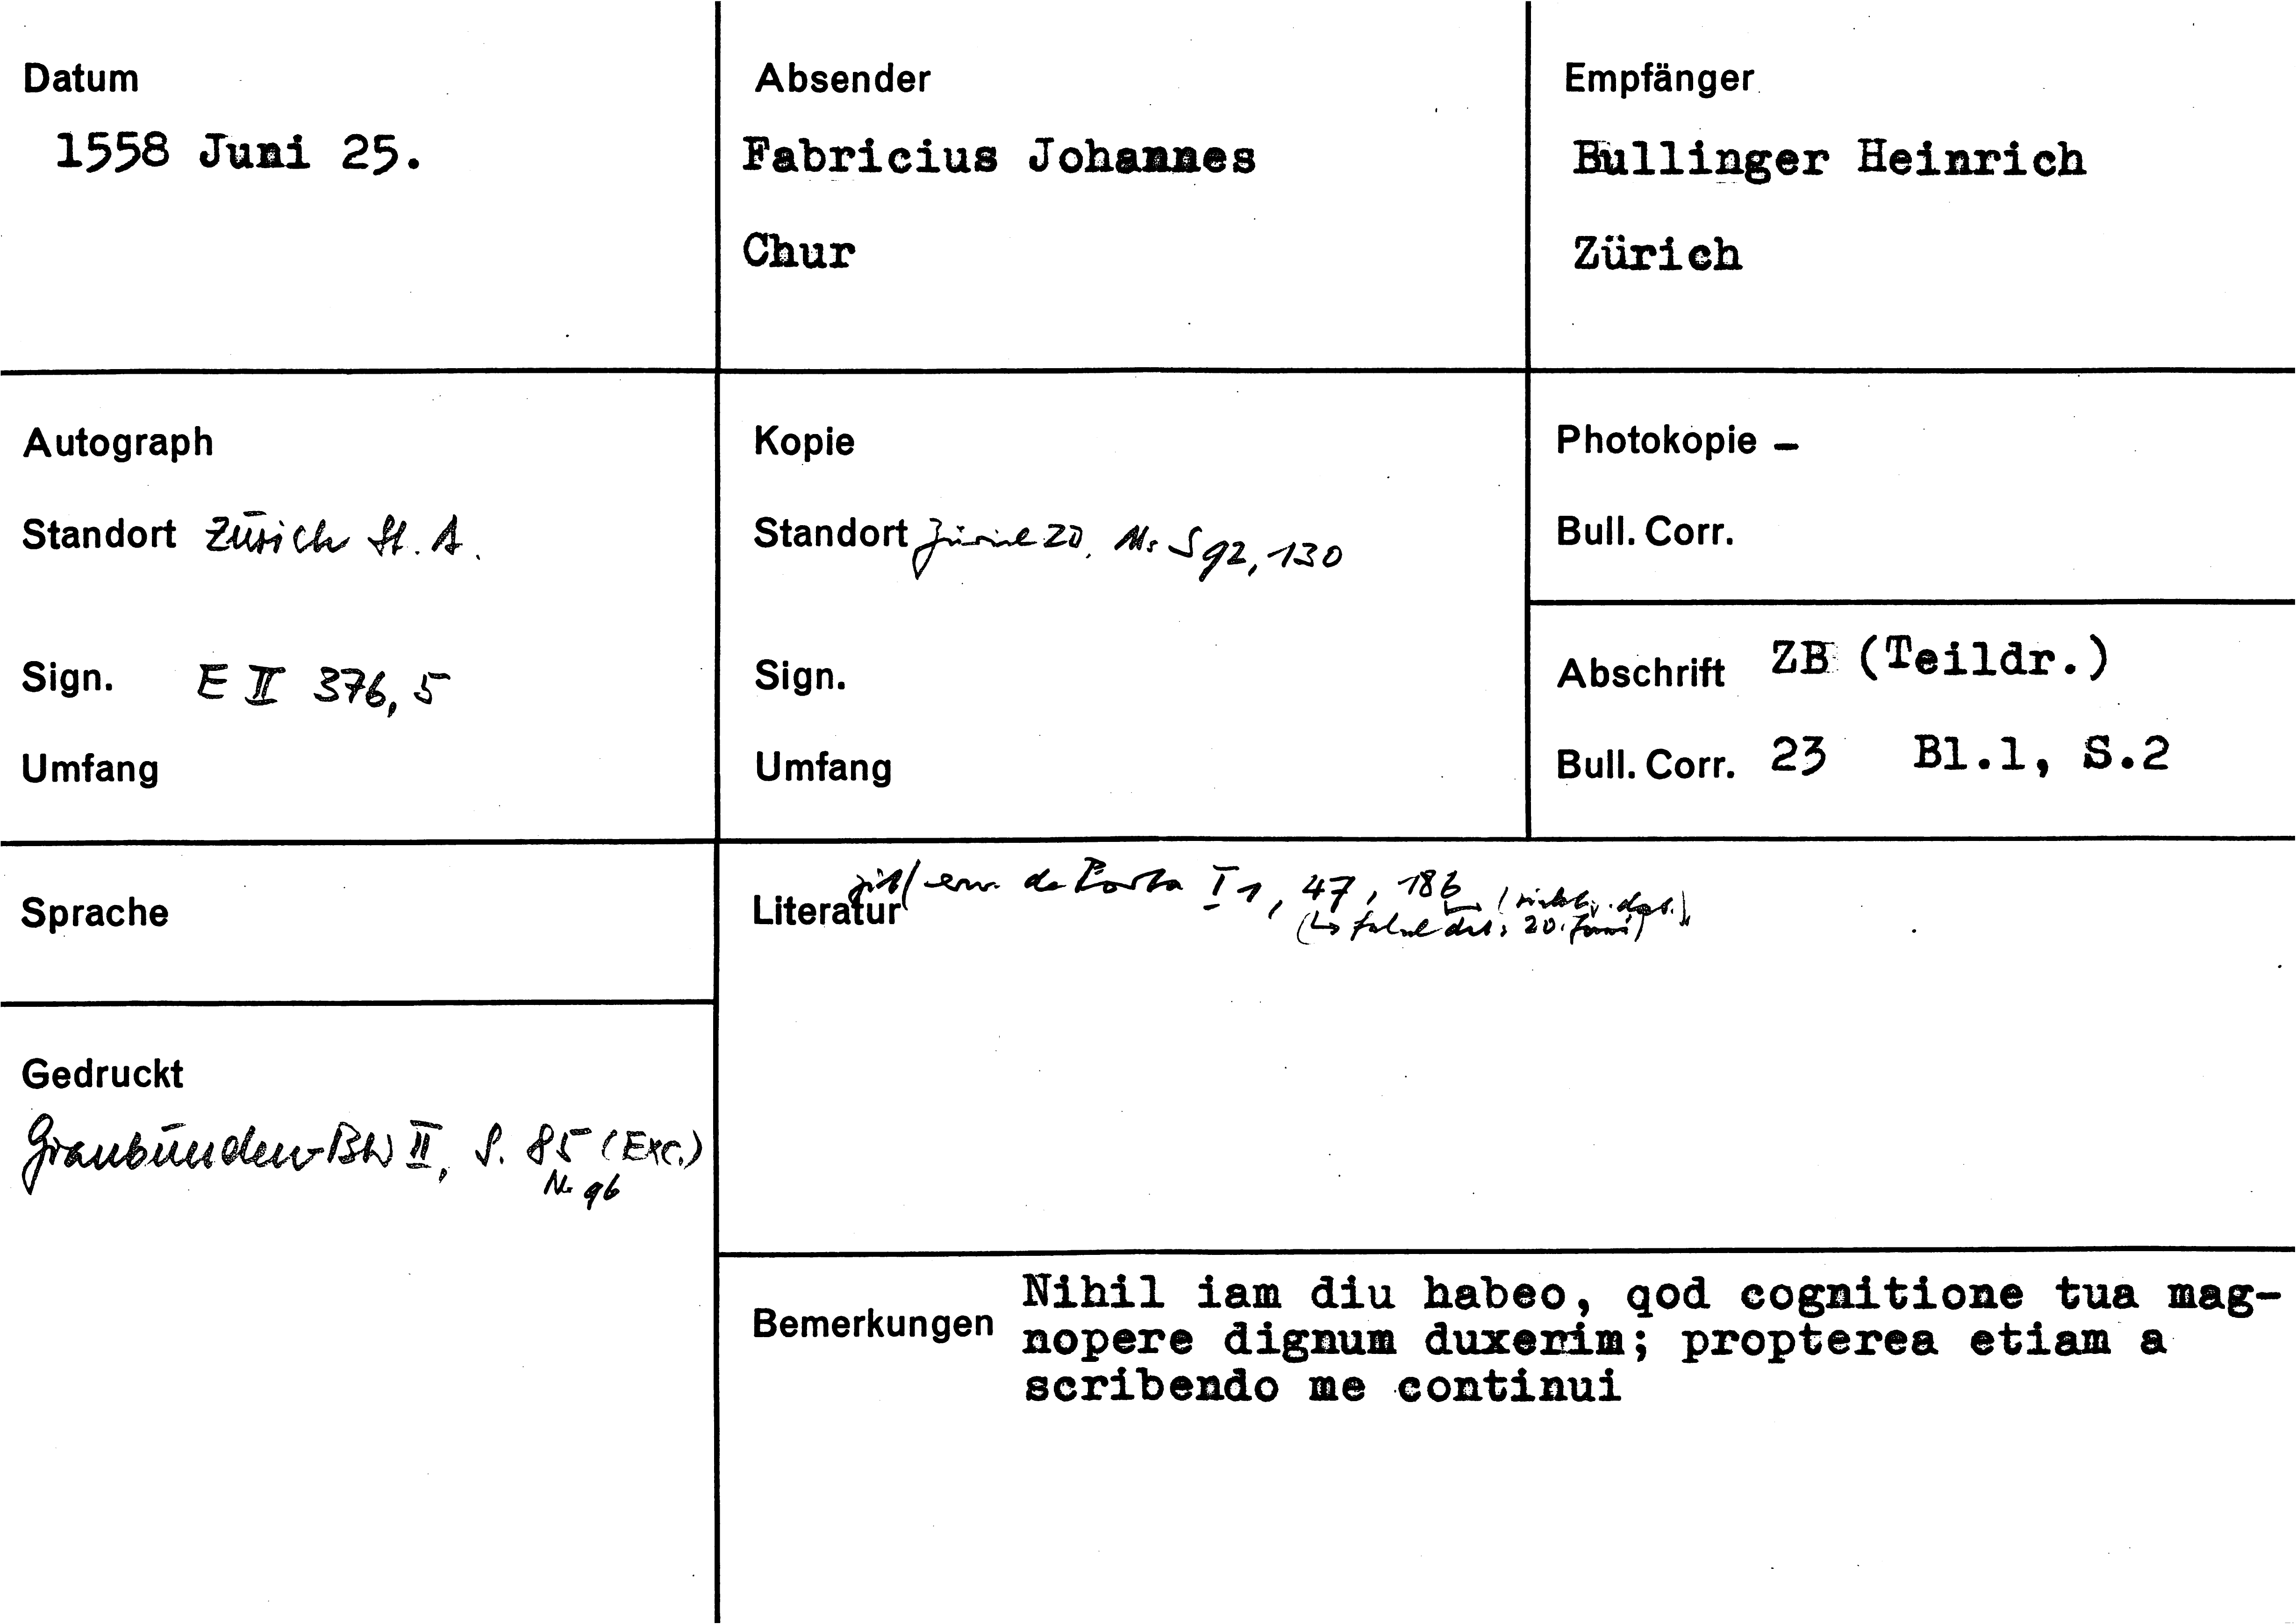 Datum
1558 Juni 25.
Absender
Fabricius Johannes
Chur
Empfänger
Bullinger Heinrich
Zürich
Autograph
Standort Zürich St. A.
Sign. E II 376, 5
Umfang
Kopie
Standort Zürich ZB, Ms S 92, 130
Sign.
Umfang
Photokopie –
Bull. Corr.
Abschrift ZB (Teildr.)
Bull. Corr. 23 Bl.1, S.2
Sprache
Literatur zit/erw. de Porta I 1, 47, 186 (richtig dat.)
(↳ falsch dat.: 20. Juni)
Gedruckt
Graubünden-BW II, S. 85 (Exc.)
Nr 96
Bemerkungen
Nihil iam diu habeo, qod cognitione tua mag-
nopere dignum duxerim; propterea etiam a
scribendo me continui